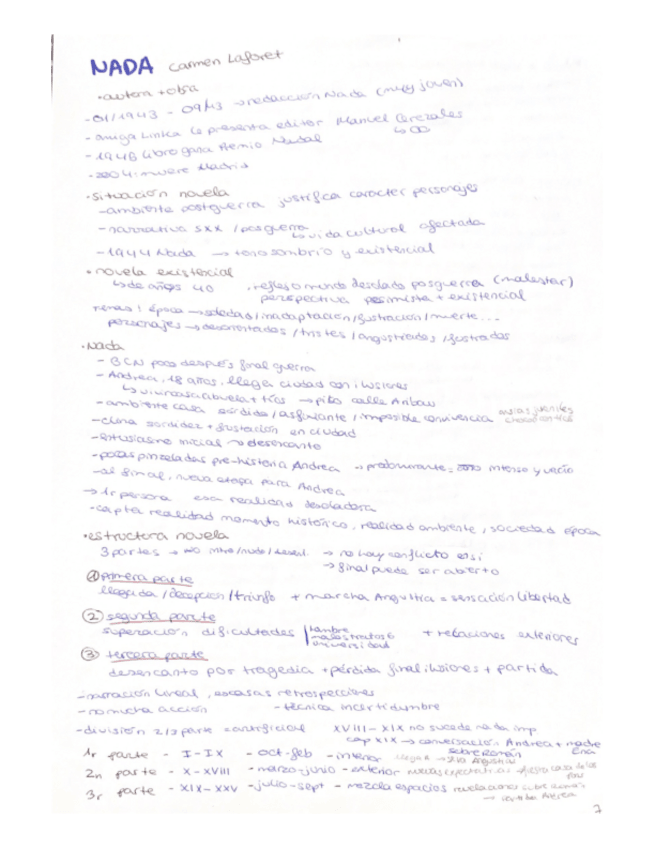 NADA Carmen Laforet
• autora + obra
- 01/1943 - 09/43 → redacción Nada (muy joven)
- amiga Linka le presenta editor Manuel Cerezales
- 1948 libro gana Premio Nadal
- 2004: muere Madrid
• situación novela
- ambiente postguerra justifica carácter personajes
- narrativa SXX / posguerra
↳ vida cultural afectada
- 1944 Nada → tono sombrío y existencial
• novela existencial
↳ de años 40 . reflejo mundo desolado posguerra (malestar)
perspectiva pesimista + existencial
temas 1 época → soledad / inadaptación / frustración / muerte...
personajes → desorientados / tristes / angustiados / frustrados
• Nada
- BCN poco después final guerra
- Andrea, 18 años, llega ciudad con ilusiones
↳ vivir casa abuela + tíos → piso calle Aribau
- ambiente casa sórdida / asfixiante / imposible convivencia ansias juveniles
- clima sordidez + frustación en ciudad
- entusiasmo inicial → desencanto
- pocas pinzeladas pre-historia Andrea intenso y vacío
- al final, nueva etapa para Andrea
→ 1r persona esa realidad desoladora
- capta realidad momento histórico, realidad ambiente, sociedad época
• estructura novela
3 partes → no intro/nudo/desenl. → no hay conflicto en sí
→ final puede ser abierto
① primera parte
llegada / decepción / triunfo + marcha Angustias = sensación libertad
② segunda parte
superación dificultades | hambre
malestratos
universidad + relaciones exteriores
③ tercera parte
desencanto por tragedia + pérdida final ilusiones + partida
- narración lineal, escasas retrospecciones
- no mucha acción - técnica incertidumbre
- división 2/3 parte = artificial XVIII - XIX no sucede nada imp
cap XIX → conversación Andrea + madre Ena
sobre Román
1r parte - I-IX - oct-feb - interior
2n parte - X-XVIII - marzo-junio - exterior
3r parte - XIX-XXV - julio-sept - mezcla espacios revelaciones sobre Román
7